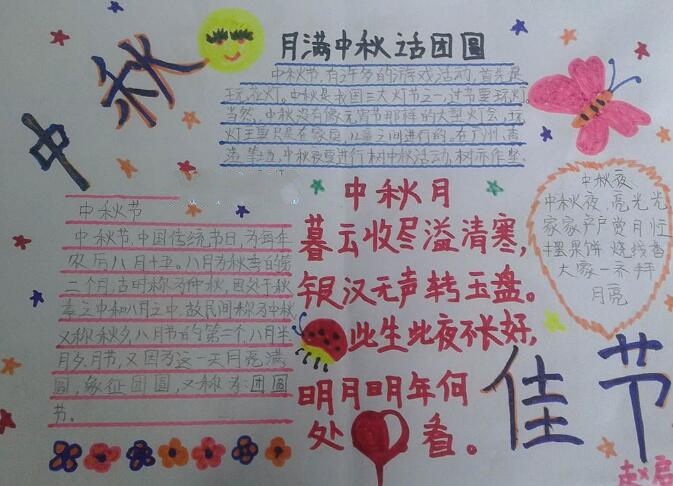 中秋
月满中秋话团圆
中秋节,有许多的游戏活动,首先是
玩花灯。中秋是我国三大灯节之一,过节要玩灯。
当然,中秋没有像元宵节那样的大型灯会,玩
灯主要只是在家庭,儿童之间进行的。在广州、南
中秋夜要进行树中秋活动,树亦作竖
中秋节
中秋节,中国传统节日,为每年
农历八月十五。八月为秋季的第
二个月,古时称为仲秋,因处于秋
季之中和八月之中,故民间称为中秋
又称秋夕,八月节的第二个,八月半
月夕,月节,又因为这一天月亮满
圆,象征团圆,又称为:团圆
节。
中秋月
暮云收尽溢清寒,
银汉无声转玉盘。
此生此夜不长好,
明月明年何
处看。
中秋夜
中秋夜,亮光光
家家户户赏月忙
摆果饼 烧线香
大家一齐拜
月亮
佳节
赵